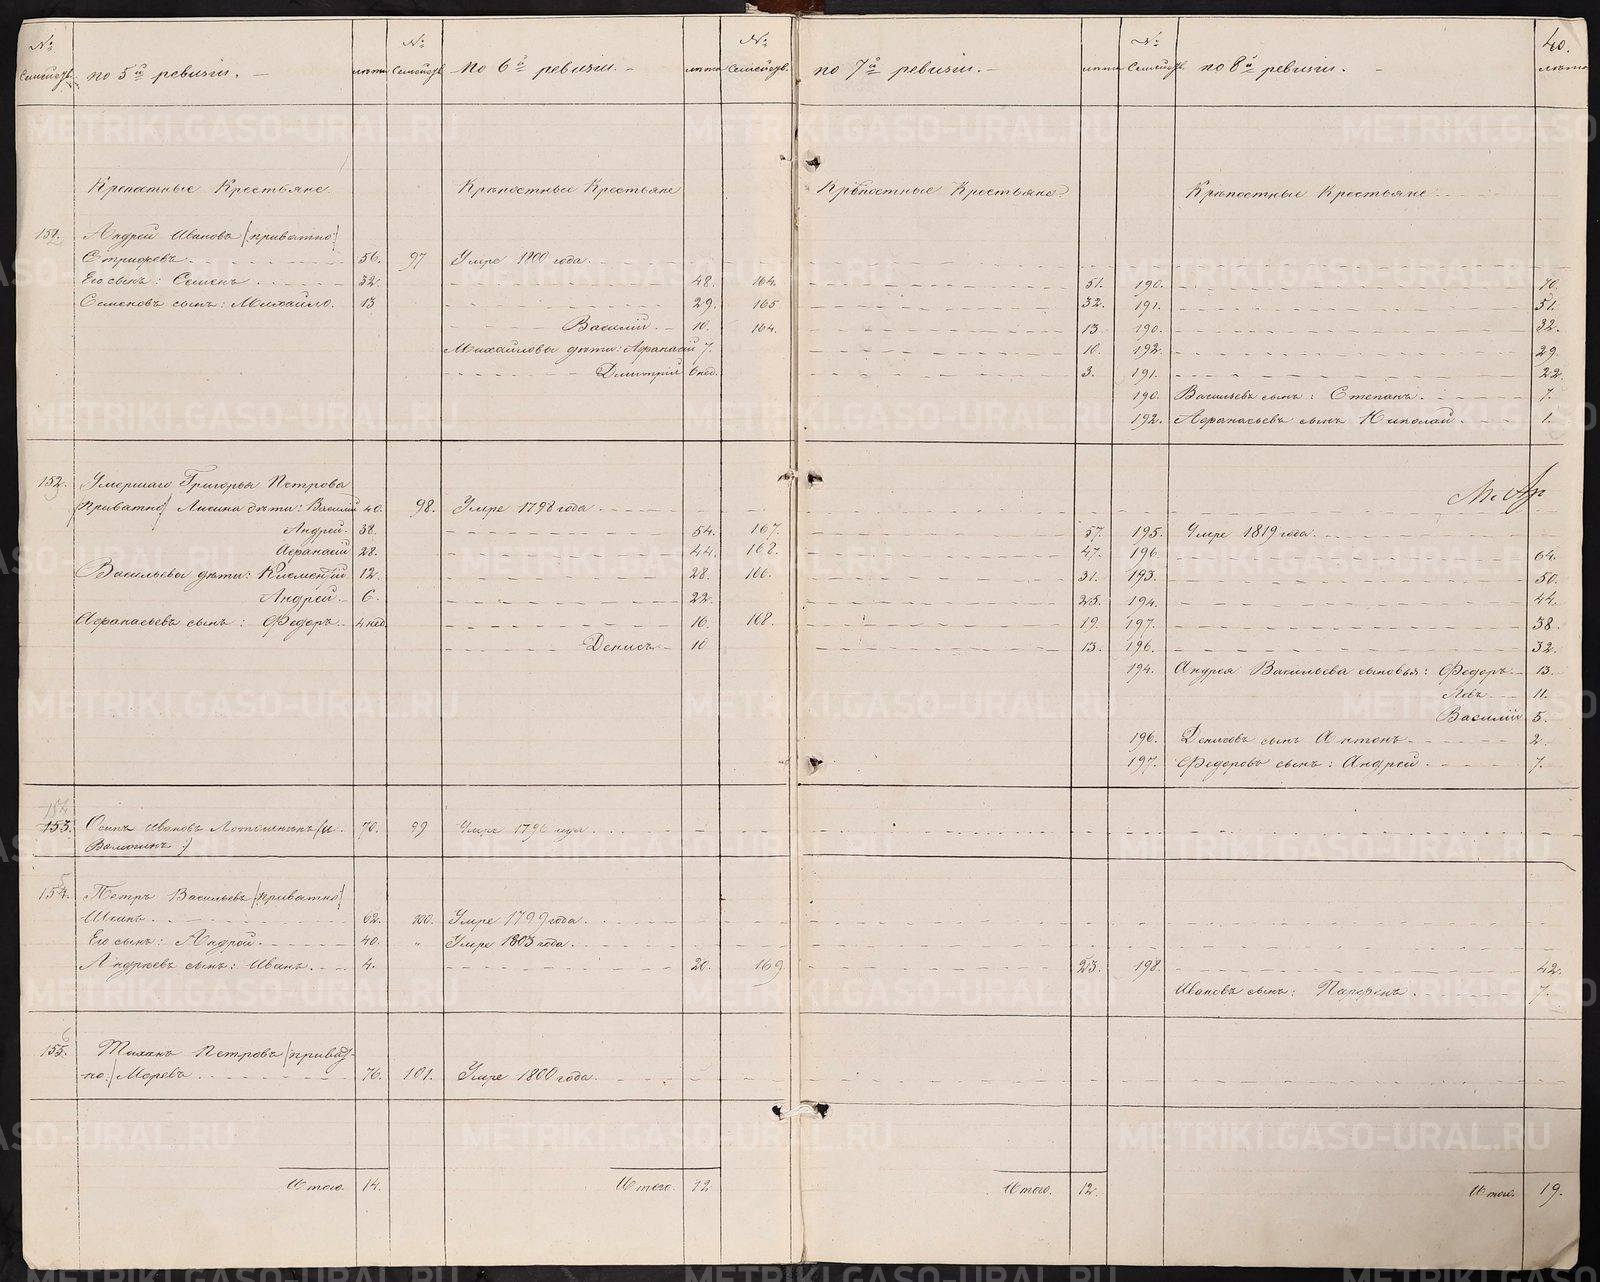 № Семейств. по 5й ревизии. лета № Семейств. по 6й ревизии. лета № Семейств. по 7й ревизии. лета № Семейств. по 8й ревизии. 40. лета
Крепостные Крестьяне Крѣпостные Крестьяне Крѣпостные Крестьяне Крѣпостные Крестьяне
Андрей Ивановъ /приватно/
56. 97 Умре 1800 года.
Его сынъ: Семенъ 32. 48. 164. 51. 190. 70.
Семеновъ сынъ: Михайло. 13 29. 165 32. 191. 51.
Василий 10. 164. 13. 190. 32.
Михайловы дѣти: Афанасий 7. 10. 192. 29.
Дмитрий 6 нед. 3. 191. 22.
190. Васильевъ сынъ: Степанъ. 7.
192. Афанасьевъ сынъ Николай 1.
152. Умершаго Григорья Петрова
/приватно/ Лисина дѣти: Василий 40. 98. Умре 1798 года
Андрей 38. 54. 167. 57. 195. Умре 1819 года.
Афанасий 28. 44. 168. 47. 196. 64.
Васильевы дѣти: Клементий 12. 28. 166. 31. 193. 50.
Андрей 6. 22. 25. 194. 44.
Афанасьевъ сынъ: Федоръ 4 нед. 16. 168. 19. 197. 38.
Денисъ 10 13. 196. 32.
194. Андрея Васильева сыновья: Федоръ 13.
Левъ 11.
Василий 5.
196. Денисовъ сынъ Антонъ 2.
197. Федоровъ сынъ: Андрей 7.
153. Осипъ Ивановъ 70. 99 Умре 1796 года.
154. Петръ Васильевъ /приватно/
62. 100. Умре 1799 года.
Его сынъ: Андрей. 40. " Умре 1803 года.
Андреевъ сынъ: Иванъ. 4. 20. 169 23. 198. 42.
Ивановъ сынъ: Парфенъ. 7.
155. Петровъ /приват-
но:/ Моревъ 76. 101. Умре 1800 года.
Итого. 14. Итого. 12 Итого. 12. Итого. 19.
METRIKI.GASO-URAL.RU